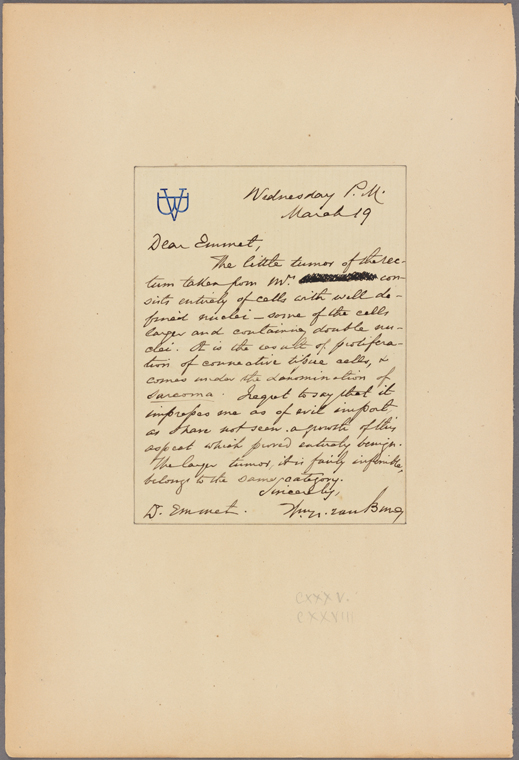 WU
Wednesday P.M.
March 19
Dear Emmet,
The little tumor of the rec-
tum taken from Mr. con-
sists entirely of cells with well de-
fined nuclei - some of the cells
large and containing double nu-
clei. It is the result of prolifera-
tion of connective tissue cells, &
comes under the denomination of
sarcoma. I regret to say that it
impresses me as of evil import,
as I have not seen a growth of this
aspect which proved entirely benign.
The larger tumor, it is fairly inferrible,
belongs to the same category.
Sincerely,
D. Emmet. van Buren
CXXXV.
CXXVIII